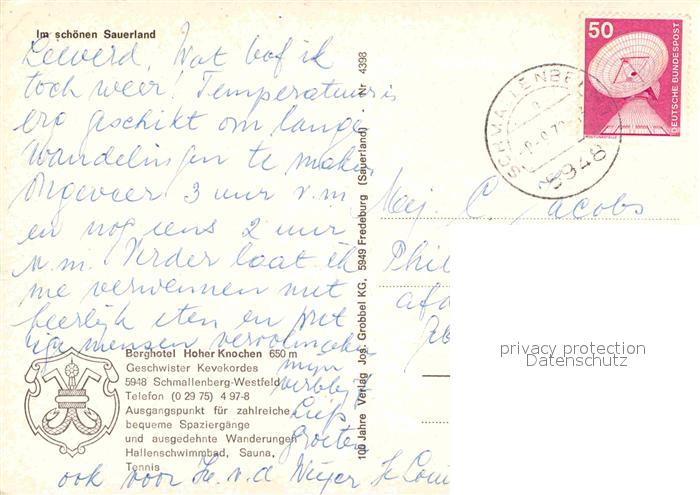 Im schönen Sauerland
Wat bof ik
toch weer! Temperatuur is
erg geschikt om lange
Wandelingen te maken
Ongeveer 3 uur v.m
en nog eens 2 uur
n.m. Verder laat ik
me verwennen met
heerlijk eten en pret
tige mensen veroolmaken
mijn
verblijf
Liefs
groeten
ook voor v. d. Meyer
Berghotel Hoher Knochen 650 m
Geschwister Kevekordes
5948 Schmallenberg-Westfeld
Telefon (0 29 75) 4 97-8
Ausgangspunkt für zahlreiche
bequeme Spaziergänge
und ausgedehnte Wanderungen
Hallenschwimmbad, Sauna,
Tennis
100 Jahre Verlag Jos. Grobbel KG, 5949 Fredeburg (Sauerland) · Nr 4398
50
DEUTSCHE BUNDESPOST
5948
Mej. C. Jacobs
Phil
afd
privacy protection
Datenschutz